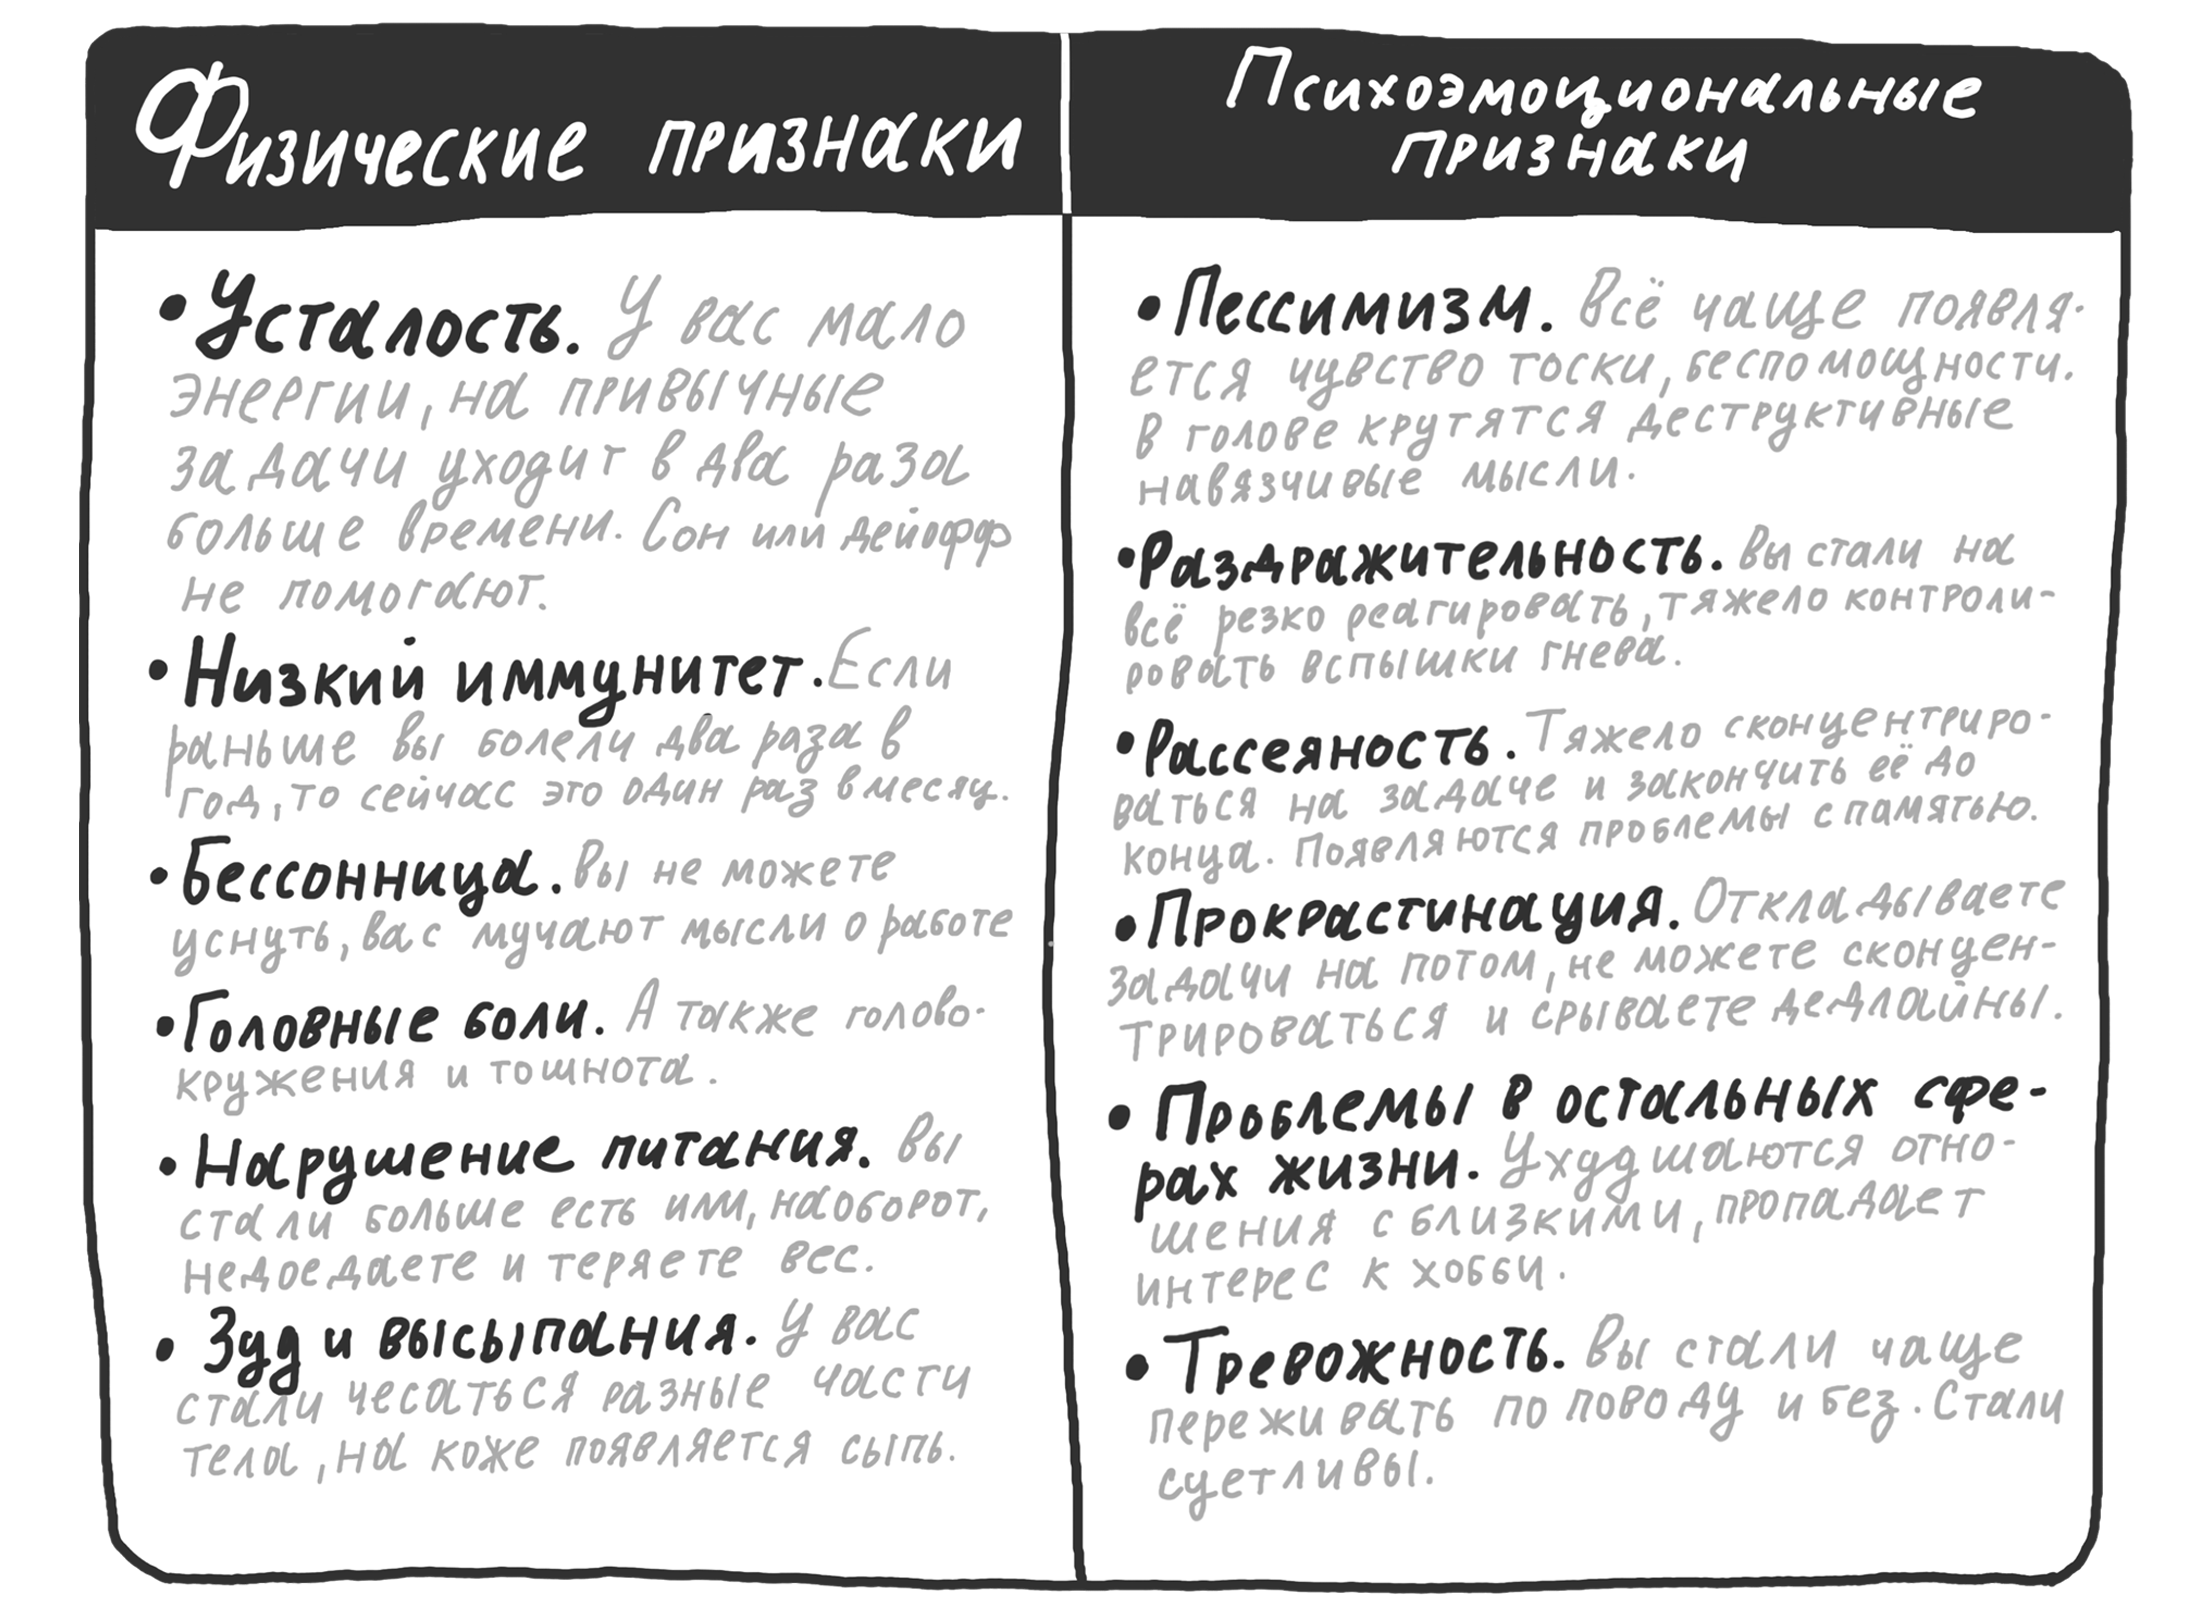 Физические признаки
• Усталость. У вас мало
энергии, на привычные
задачи уходит в два раза
больше времени. Сон или дейофф
не помогают.
• Низкий иммунитет. Если
раньше вы болели два раза в
год, то сейчас это один раз в месяц.
• Бессонница. Вы не можете
уснуть, вас мучают мысли о работе
• Головные боли. А также голово-
кружения и тошнота.
• Нарушение питания. Вы
стали больше есть или, наоборот,
недоедаете и теряете вес.
• Зуд и высыпания. У вас
стали чесаться разные части
тела, на коже появляется сыпь.
Психоэмоциональные
признаки
• Пессимизм. Всё чаще появля-
ется чувство тоски, беспомощности.
В голове крутятся деструктивные
навязчивые мысли.
• Раздражительность. Вы стали на
всё резко реагировать, тяжело контроли-
ровать вспышки гнева.
• Рассеяность. Тяжело сконцентриро-
ваться на задаче и закончить её до
конца. Появляются проблемы с памятью.
• Прокрастинация. Откладываете
задачи на потом, не можете сконцен-
трироваться и срываете дедлайны.
• Проблемы в остальных сфе-
рах жизни. Ухудшаются отно-
шения с близкими, пропадает
интерес к хобби.
• Тревожность. Вы стали чаще
переживать по поводу и без. Стали
суетливы.